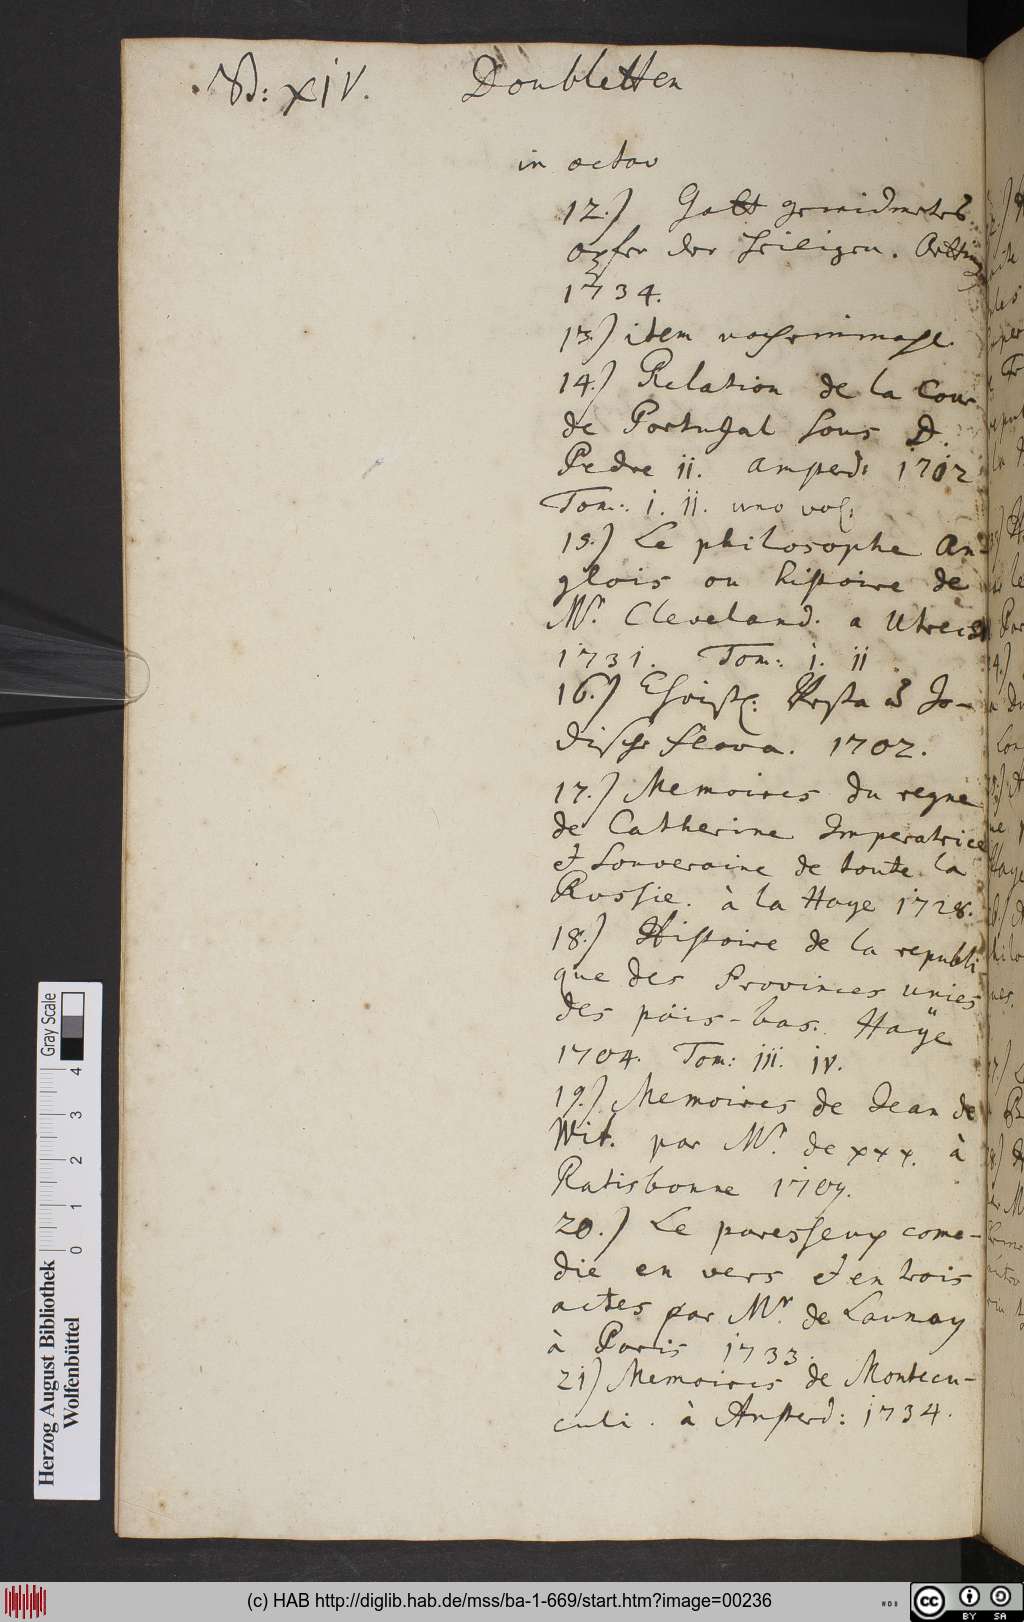 B: XIV. Doubletten
in octav
12.) Gott gewidmetes
opfer der heiligen. Oetting
1734.
13.) item nochmahl
14.) Relation de la Cour
de Portugal sous D.
Pedre II. Amsterd: 1702
Tom: I. II. uno vol:
15.) Le philosophe An-
glois ou histoire de
Mr. Cleveland. a Utrecht
1731. Tom: I. II
16.) Christl: Vesta u Jo-
dische flora. 1702.
17.) Memoires du regne
de Catherine Imperatrice
et Souveraine de toute la
Russie. à la Haye 1728.
18.) Histoire de la republi
que des Provinces unies
des païs-bas. Haÿe
1704. Tom: III. IV.
19.) Memoires de Jean de
Wit. par Mr. de xxx. à
Ratisbonne 1709.
20.) Le paresseux come-
die en vers et en trois
actes par Mr. de Launay
à Paris 1733.
21) Memoires de Montecu-
culi. à Amsterd: 1734.
Gray Scale
0 1 2 3 4
Herzog August Bibliothek
Wolfenbüttel
(c) HAB http://diglib.hab.de/mss/ba-1-669/start.htm?image=00236
cc BY SA